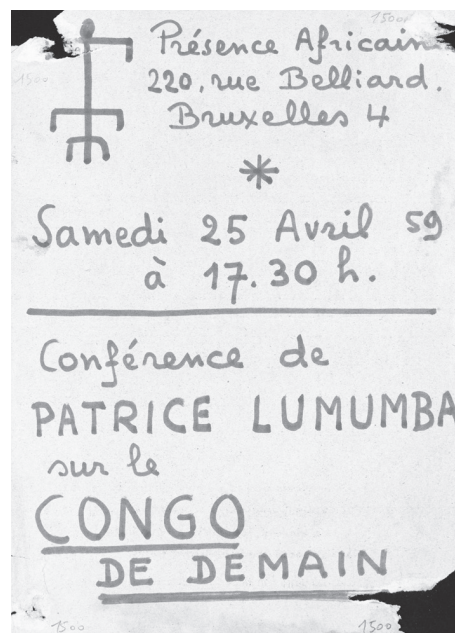 1500
Présence Africain
1500
220, rue Belliard.
Bruxelles 4
Samedi 25 Avril 59
à 17.30 h.
Conférence de
PATRICE LUMUMBA
sur le
CONGO
DE DEMAIN
1500
1500